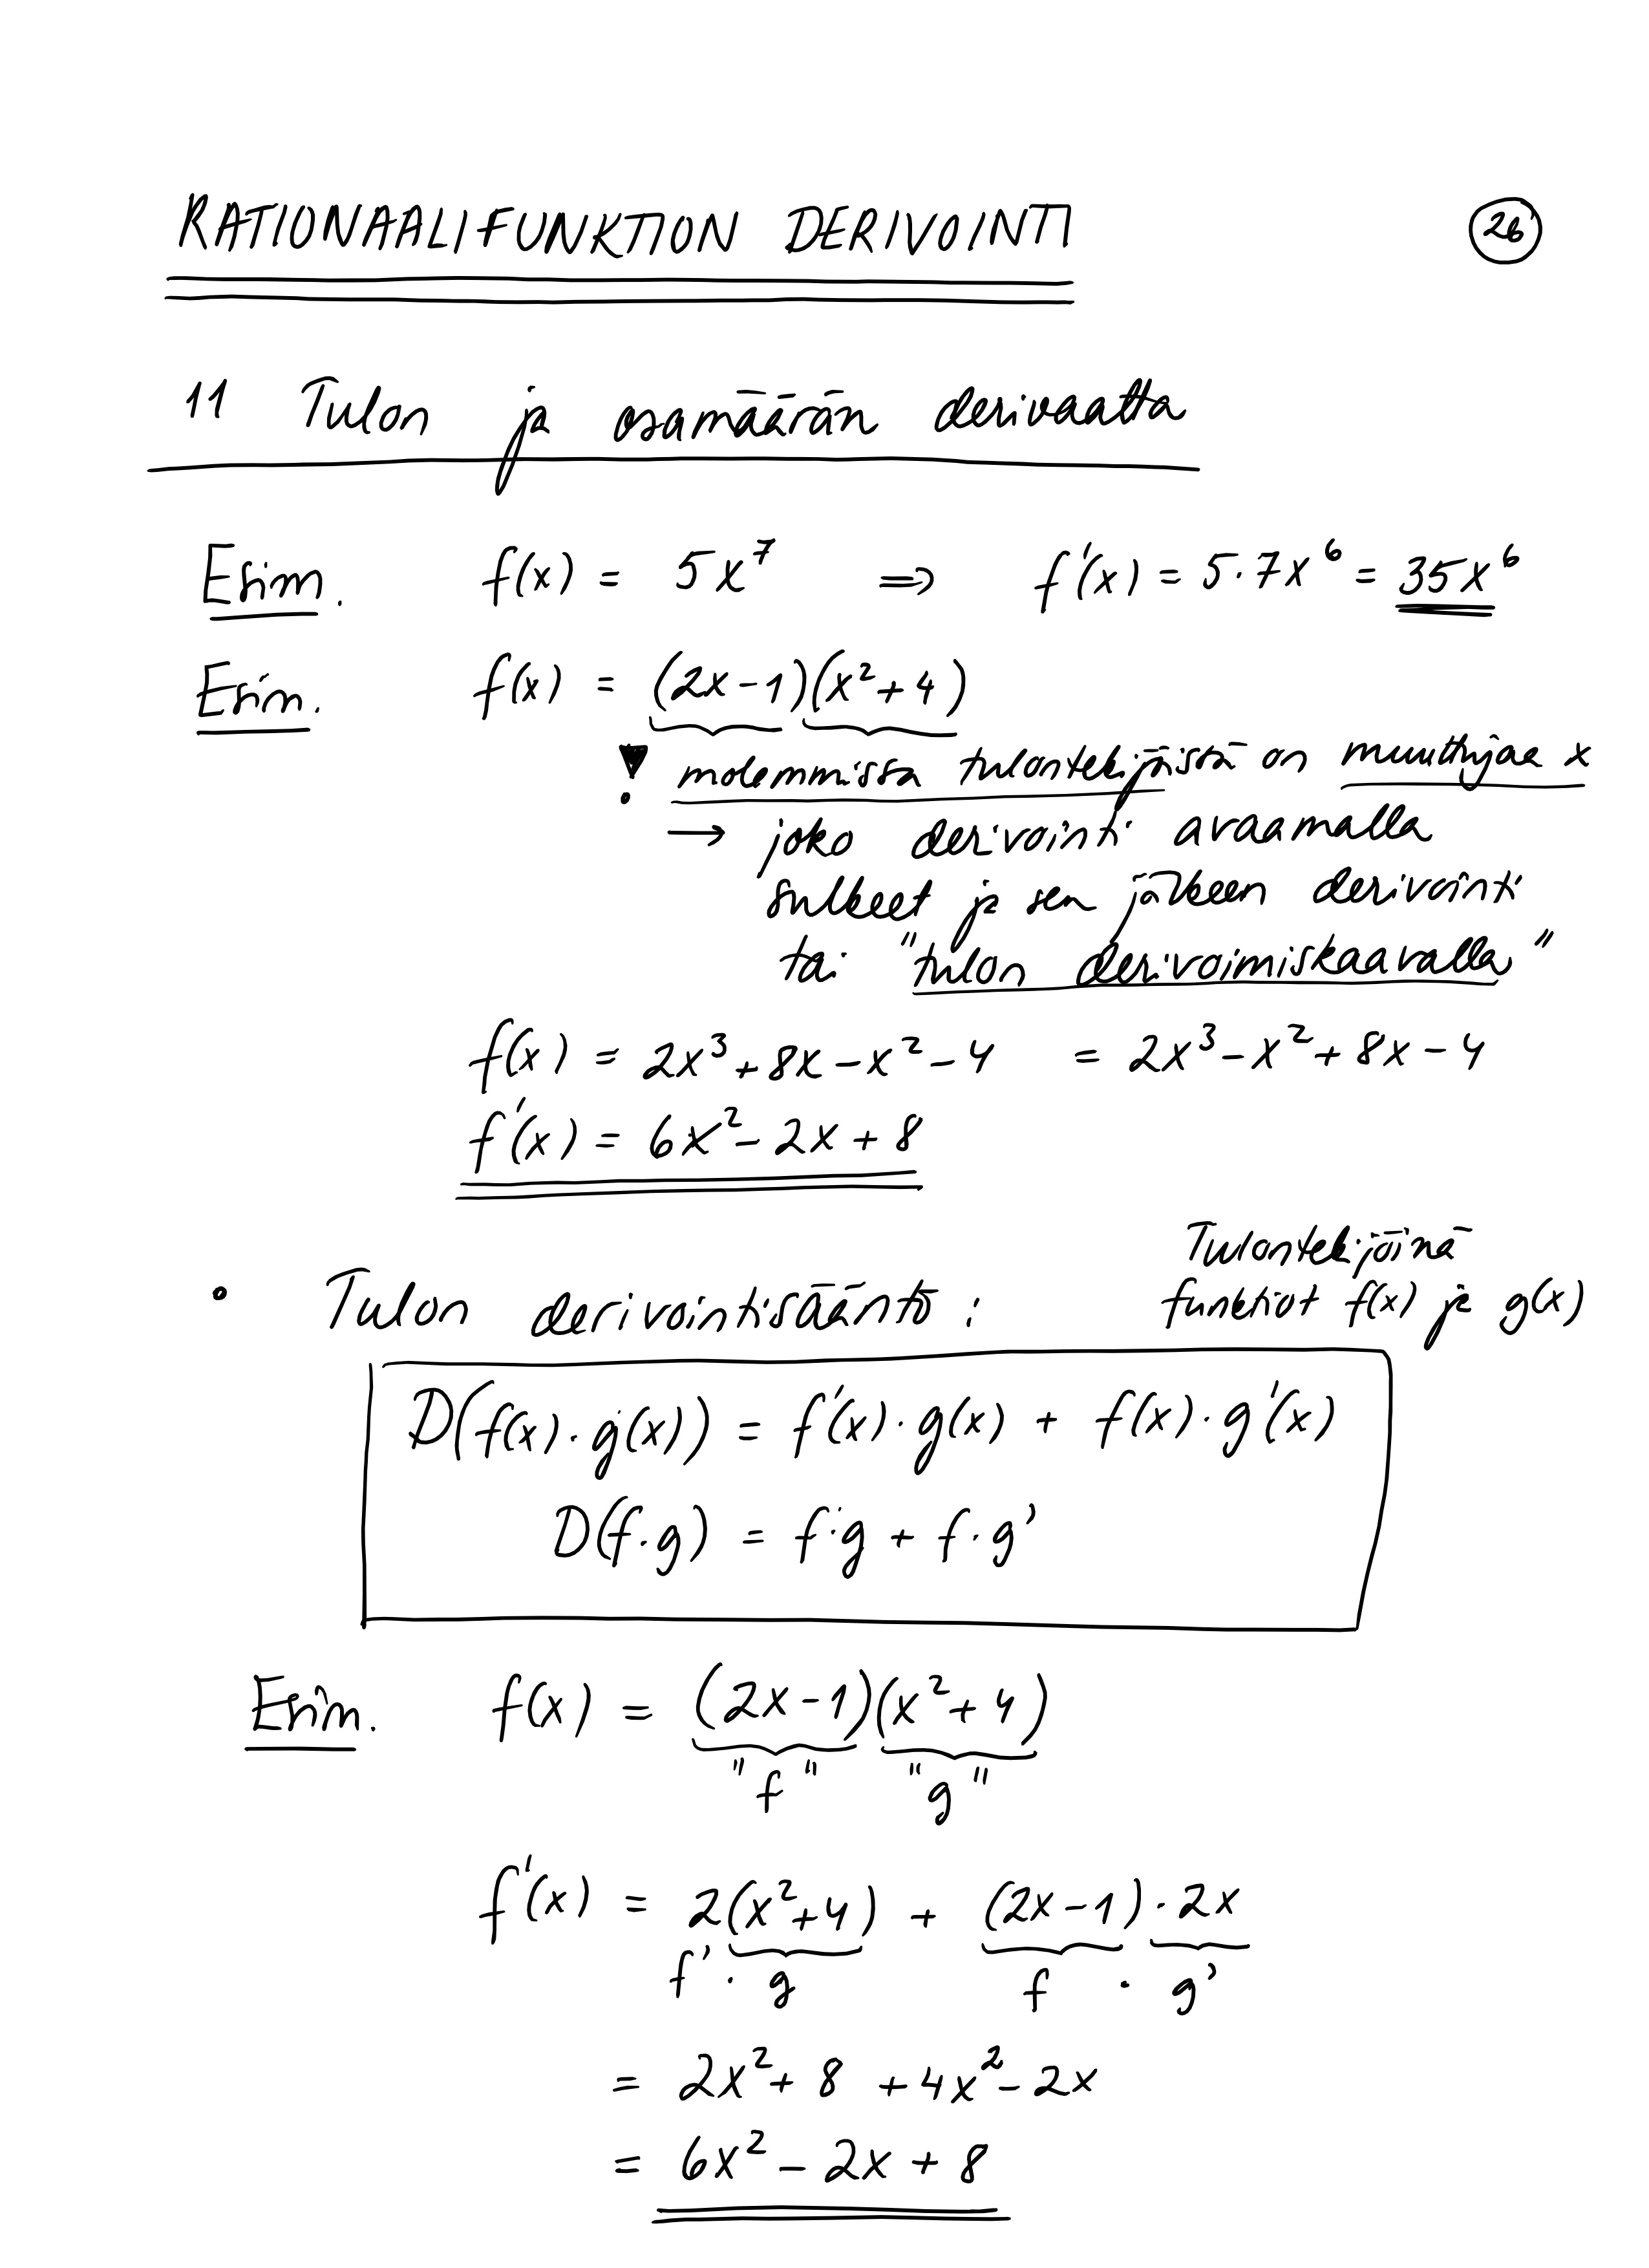 RATIONAALIFUNKTION DERIVOINTI
26
11 Tulon ja osamäärän derivaatta
Esim. f(x) = 5x⁷ ⇒ f'(x) = 5·7x⁶ = 35x⁶
Esim. f(x) = (2x-1)(x²+4)
! molemmissa tulontekijöissä on muuttujaa x
→ joko derivointi avaamalla
sulkeet ja sen jälkeen derivointi
tai "tulon derivoimiskaavalla"
f(x) = 2x³+8x-x²-4 = 2x³-x²+8x-4
f'(x) = 6x²-2x+8
Tulontekijöinä
• Tulon derivointisääntö: funktiot f(x) ja g(x)
D(f(x)·g(x)) = f'(x)·g(x) + f(x)·g'(x)
D(f·g) = f'·g + f·g'
Esim. f(x) = (2x-1)(x²+4)
"f" "g"
f'(x) = 2(x²+4) + (2x-1)·2x
f' · g f · g'
= 2x²+8 +4x²-2x
= 6x²-2x+8